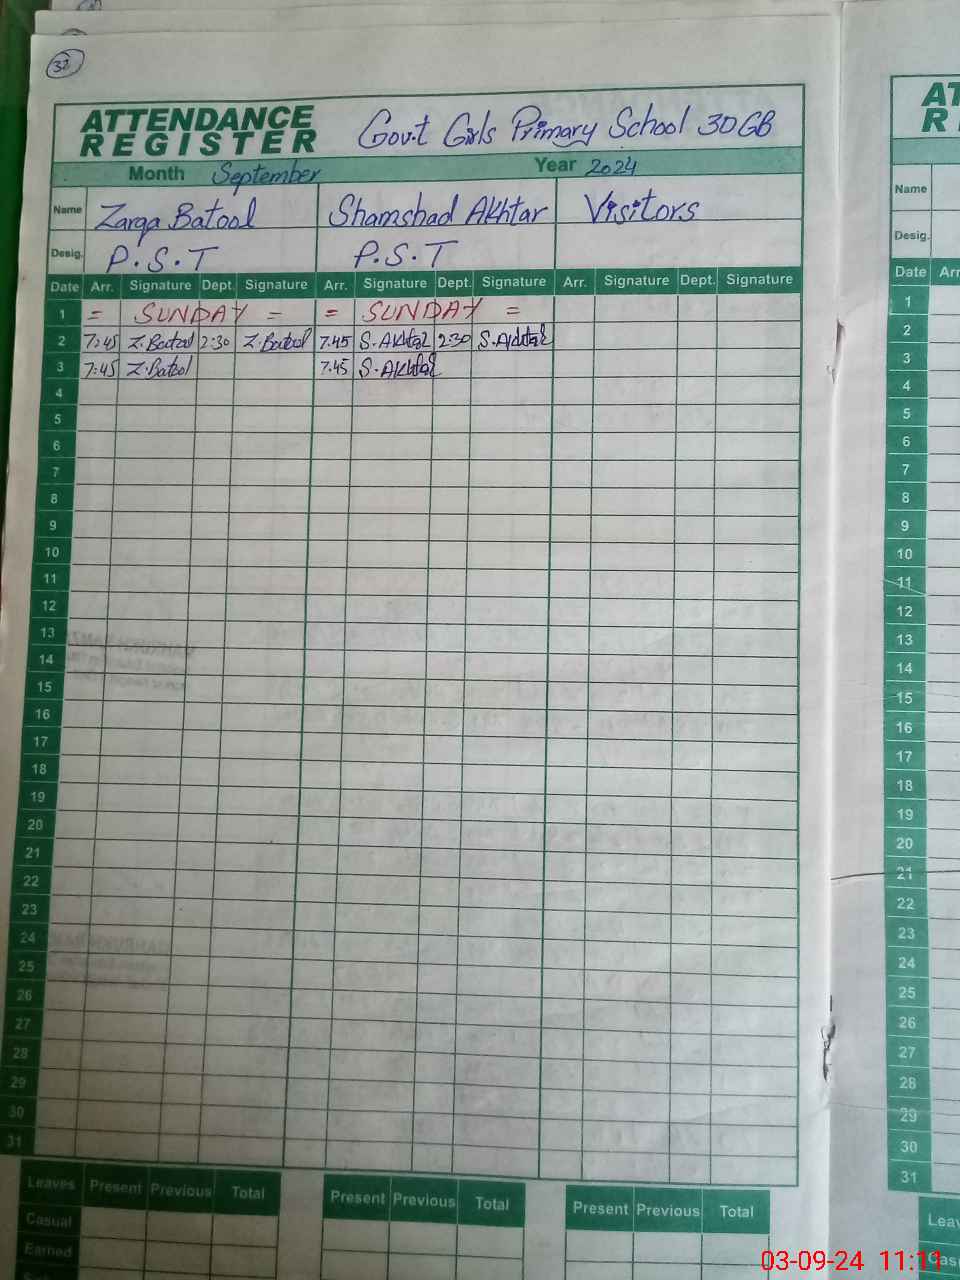 32
ATTENDANCE REGISTER
Gov.t Girls Primary School 30GB
Month September Year 2024
Name Zarqa Batool Shamshad Akhtar Visitors
Desig. P.S.T P.S.T
Date Arr. Signature Dept. Signature Arr. Signature Dept. Signature Arr. Signature Dept. Signature
1 = SUNDAY = = SUNDAY =
2 7:45 Z.Batool 2:30 Z.Batool 7.45 S.Akhtar 2:30 S.Akhtar
3 7:45 Z.Batool 7.45 S.Akhtar
4
5
6
7
8
9
10
11
12
13
14
15
16
17
18
19
20
21
22
23
24
25
26
27
28
29
30
31
Leaves Present Previous Total Present Previous Total Present Previous Total
Casual
Earned
AT
R
Name
Desig.
Date Arr
1
2
3
4
5
6
7
8
9
10
11
12
13
14
15
16
17
18
19
20
21
22
23
24
25
26
27
28
29
30
31
Lea
Cas
03-09-24 11:11